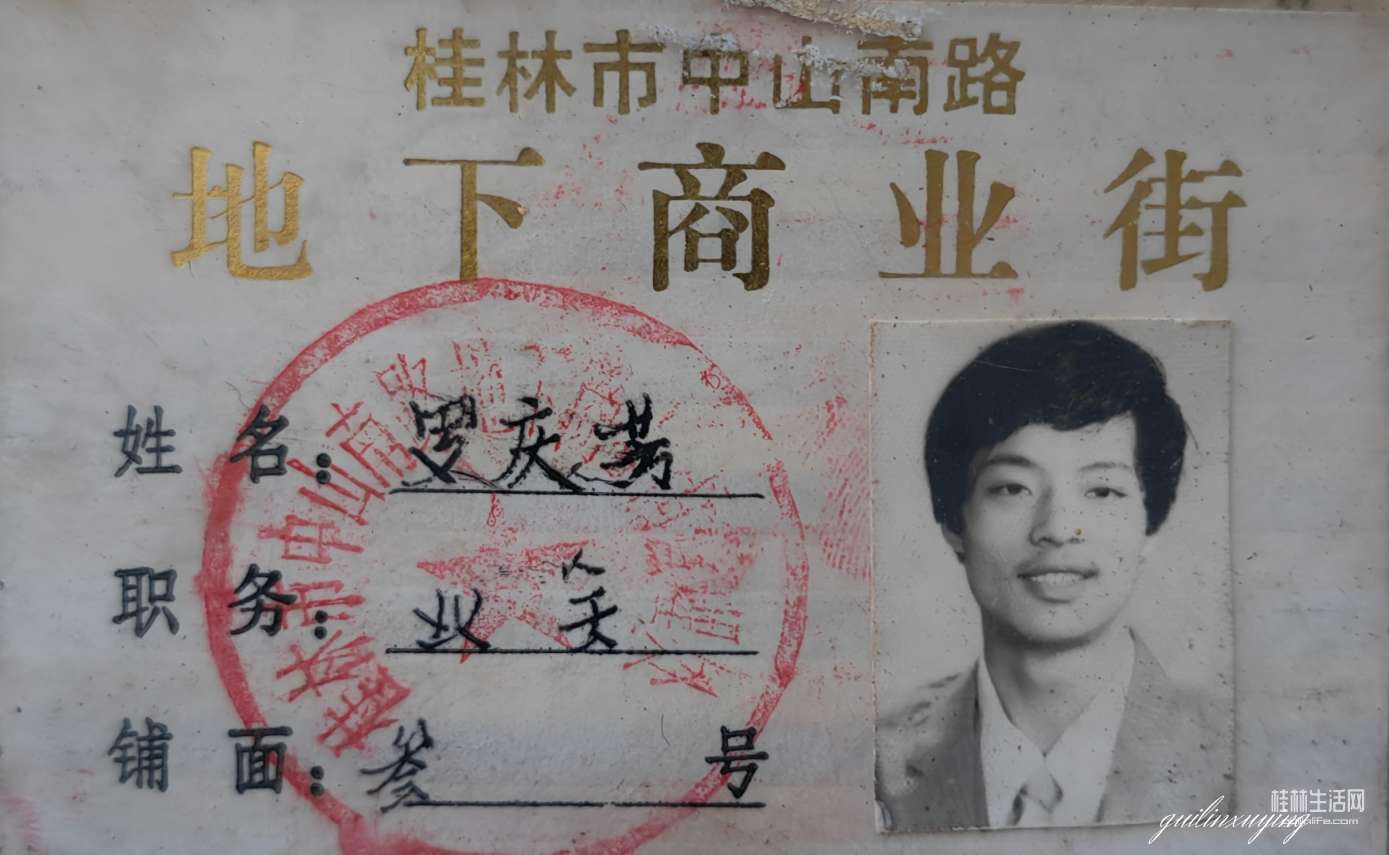 桂林市中山南路
地下商业街
姓名：罗庆芳
职务：业矣
铺面：叁 号
桂林市中山南
桂林生活网
guilinxuying